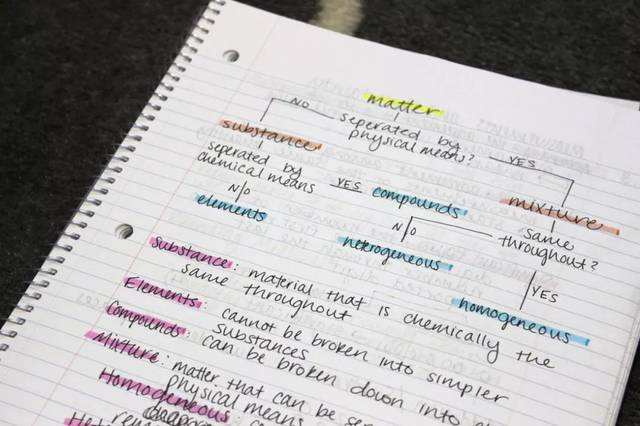 matter
NO
seperated by
physical means?
YES
substance
seperated by
chemical means
YES
compounds
mixture
N/O
elements
N/O
same
throughout?
heterogeneous
YES
homogeneous
Substance: material that is chemically the
same throughout
Elements: cannot be broken into simpler
substances
Compounds: can be broken down into
Mixture: matter that can be
physical means
Homogeneous: